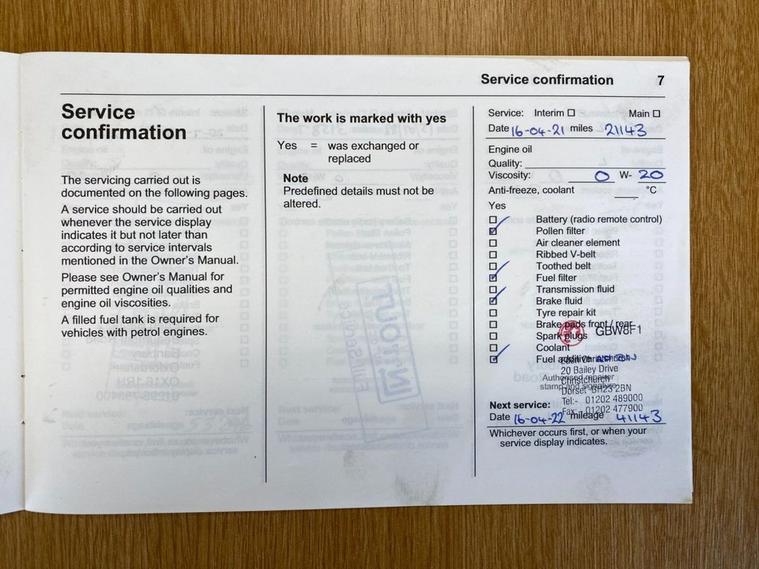 Service confirmation 7
Service
confirmation
The servicing carried out is
documented on the following pages.
A service should be carried out
whenever the service display
indicates it but not later than
according to service intervals
mentioned in the Owner's Manual.
Please see Owner's Manual for
permitted engine oil qualities and
engine oil viscosities.
A filled fuel tank is required for
vehicles with petrol engines.
The work is marked with yes
Yes = was exchanged or
replaced
Note
Predefined details must not be
altered.
Service: Interim Main
Date 16-04-21 miles 21143
Engine oil
Quality:
Viscosity: 0 W- 20
Anti-freeze, coolant °C
Yes
Battery (radio remote control)
Pollen filter
Air cleaner element
Ribbed V-belt
Toothed belt
Fuel filter
Transmission fluid
Brake fluid
Tyre repair kit
Brake pads front / rear
Spark plugs GBW8F1
Coolant
Fuel additive
20 Bailey Drive
Authorised repairer
Christchurch
stamp and signature
Dorset BH23 2BN
Tel:- 01202 489000
Next service:
Fax:- 01202 477900
Date 16-04-22 mileage 41143
Whichever occurs first, or when your
service display indicates.